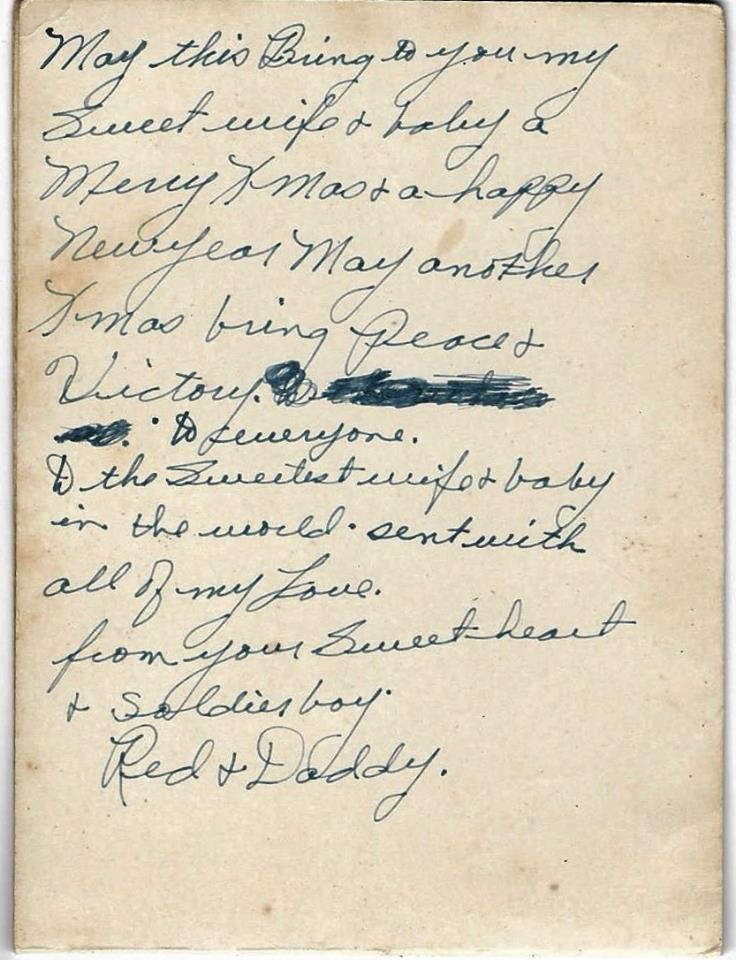 May this Bring to you my
Sweet wife & baby a
Merry Xmas & a happy
New year May another
Xmas bring Peace &
Victory.
to everyone.
To the Sweetest wife & baby
in the world. sent with
all of my Love.
from your Sweetheart
& Soldier boy.
Red & Daddy.